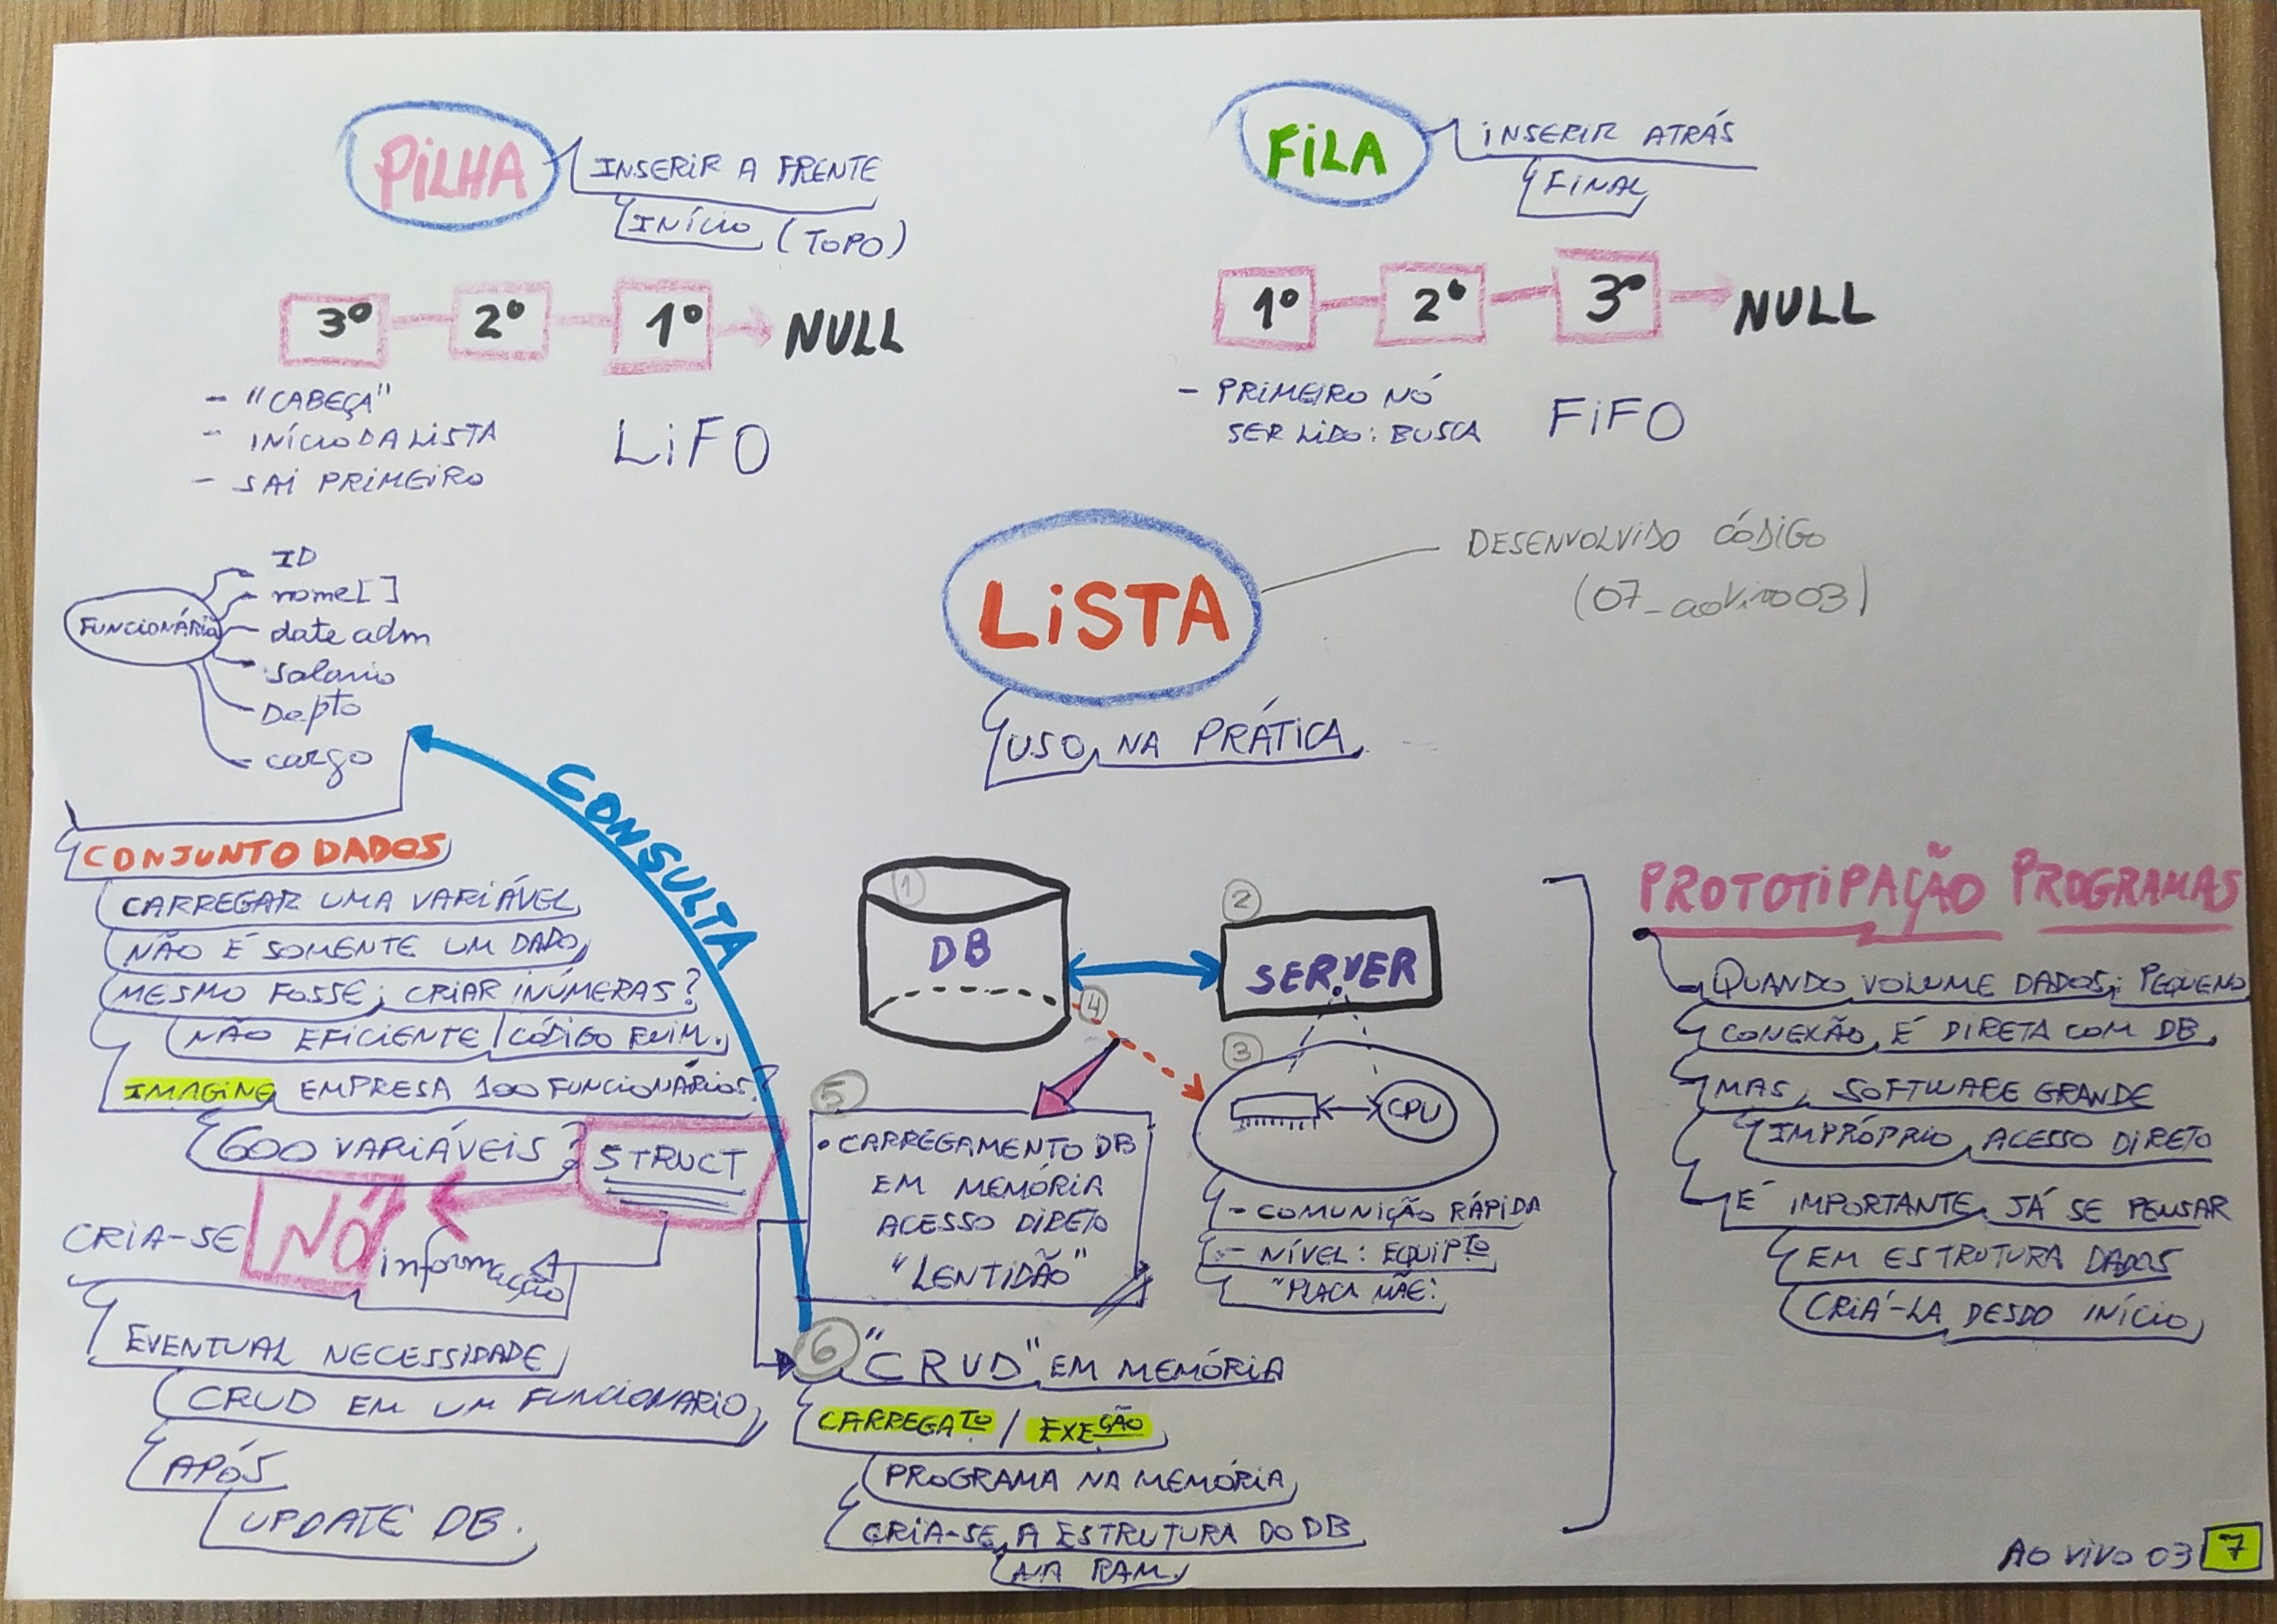 PILHA
INSERIR A FRENTE
INÍCIO (TOPO)
3º 2º 1º NULL
- "CABEÇA"
- INÍCIO DA LISTA
- SAI PRIMEIRO
LIFO
FILA
INSERIR ATRÁS
FINAL
1º 2º 3º NULL
- PRIMEIRO NÓ
SER LIDO: BUSCA
FIFO
LISTA
DESENVOLVIDO CÓDIGO
(07_aoVivo03)
USO NA PRÁTICA
FUNCIONÁRIO
ID
nome[]
date adm
salario
Depto
cargo
CONJUNTO DADOS
CARREGAR UMA VARIÁVEL
NÃO É SOMENTE UM DADO
MESMO FOSSE; CRIAR INÚMERAS?
NÃO EFICIENTE / CÓDIGO RUIM.
IMAGINE EMPRESA 100 FUNCIONÁRIOS?
600 VARIÁVEIS?
STRUCT
CRIA-SE NÓ informação
EVENTUAL NECESSIDADE
CRUD EM UM FUNCIONARIO
APÓS
UPDATE DB.
CONSULTA
1
DB
2
SERVER
3
CPU
- COMUNIÇÃO RÁPIDA
- NÍVEL: EQUIPTO
"PLACA MÃE:
4
5
• CARREGAMENTO DB
EM MEMÓRIA
ACESSO DIRETO
"LENTIDÃO"
6
"CRUD" EM MEMÓRIA
CARREGATO / EXEÇÃO
PROGRAMA NA MEMÓRIA
CRIA-SE A ESTRUTURA DO DB
NA RAM.
PROTOTIPAÇÃO PROGRAMAS
QUANDO VOLUME DADOS; PEQUENO
CONEXÃO É DIRETA COM DB
MAS, SOFTWARE GRANDE
IMPRÓPRIO ACESSO DIRETO
É IMPORTANTE JÁ SE PENSAR
EM ESTRUTURA DADOS
CRIÁ-LA DESDO INÍCIO
AO VIVO 03 7